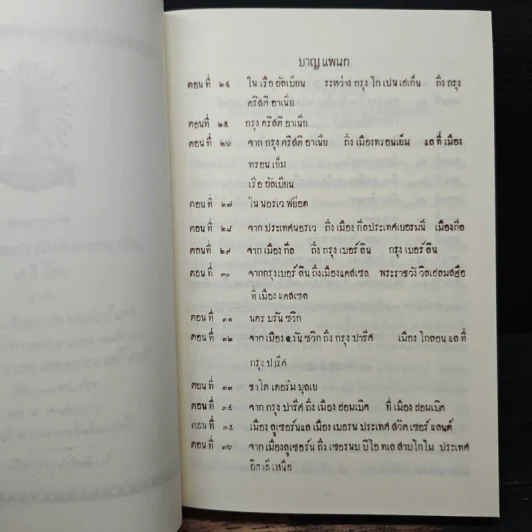 บาญแพนก
ตอนที่ ๒๔ ในเรืออัลเบียน ระหว่างกรุงโกเปนเฮเก็น ถึงกรุง
คริสติอาเนีย
ตอนที่ ๒๕ กรุงคริสติอาเนีย
ตอนที่ ๒๖ จากกรุงคริสติอาเนีย ถึงเมืองทรอนเย็ม แลที่เมือง
ทรอนเย็ม
เรืออัลเบียน
ตอนที่ ๒๗ ในนอรเวฟยอด
ตอนที่ ๒๘ จากประเทศนอรเว ถึงเมืองกีลประเทศเยอรมนี เมืองกีล
ตอนที่ ๒๙ จากเมืองกีล ถึงกรุงเบอร์ลิน กรุงเบอร์ลิน
ตอนที่ ๓๐ จากกรุงเบอร์ลินถึงเมืองแคสเซล พระราชวังวิลเฮลมสฮือ
ที่เมืองแคสเซล
ตอนที่ ๓๑ นครบรันซวิก
ตอนที่ ๓๒ จากเมืองบรันซวิกถึงกรุงปารีศ เมืองโกลอนแลที่
กรุงปารีศ
ตอนที่ ๓๓ ชาโตเดอรัมบุลเย
ตอนที่ ๓๔ จากกรุงปารีศถึงเมืองฮอมเบิค ที่เมืองฮอมเบิค
ตอนที่ ๓๕ เมืองลูเซอร์นแลเมืองเบอรนประเทศสวิตเซอร์แลนด์
ตอนที่ ๓๖ จากเมืองลูเซอร์นถึงเซรนบบิโอ ทเลสาบโกโม ประเทศ
อิตาลีเหนือ